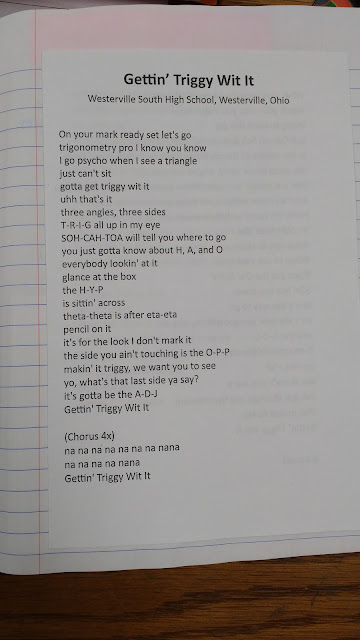 Gettin' Triggy Wit It
Westerville South High School, Westerville, Ohio
On your mark ready set let's go
trigonometry pro I know you know
I go psycho when I see a triangle
just can't sit
gotta get triggy wit it
uhh that's it
three angles, three sides
T-R-I-G all up in my eye
SOH-CAH-TOA will tell you where to go
you just gotta know about H, A, and O
everybody lookin' at it
glance at the box
the H-Y-P
is sittin' across
theta-theta is after eta-eta
pencil on it
it's for the look I don't mark it
the side you ain't touching is the O-P-P
makin' it triggy, we want you to see
yo, what's that last side ya say?
it's gotta be the A-D-J
Gettin' Triggy Wit It
(Chorus 4x)
na na na na na na na nana
na na na na nana
Gettin' Triggy Wit It